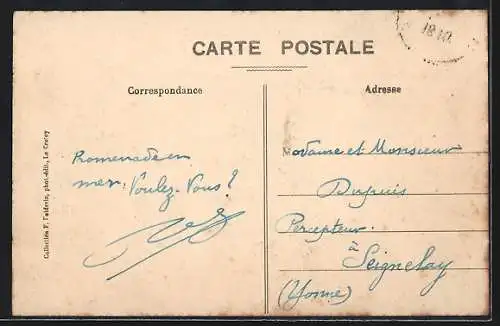 CARTE POSTALE
18 10
Correspondance
Adresse
Promenade en
mer. Voulez-Vous?
Madame et Monsieur
Dupuis
Percepteur.
à
Seignelay
(Yonne)
Collection F. phot.-édit., Le